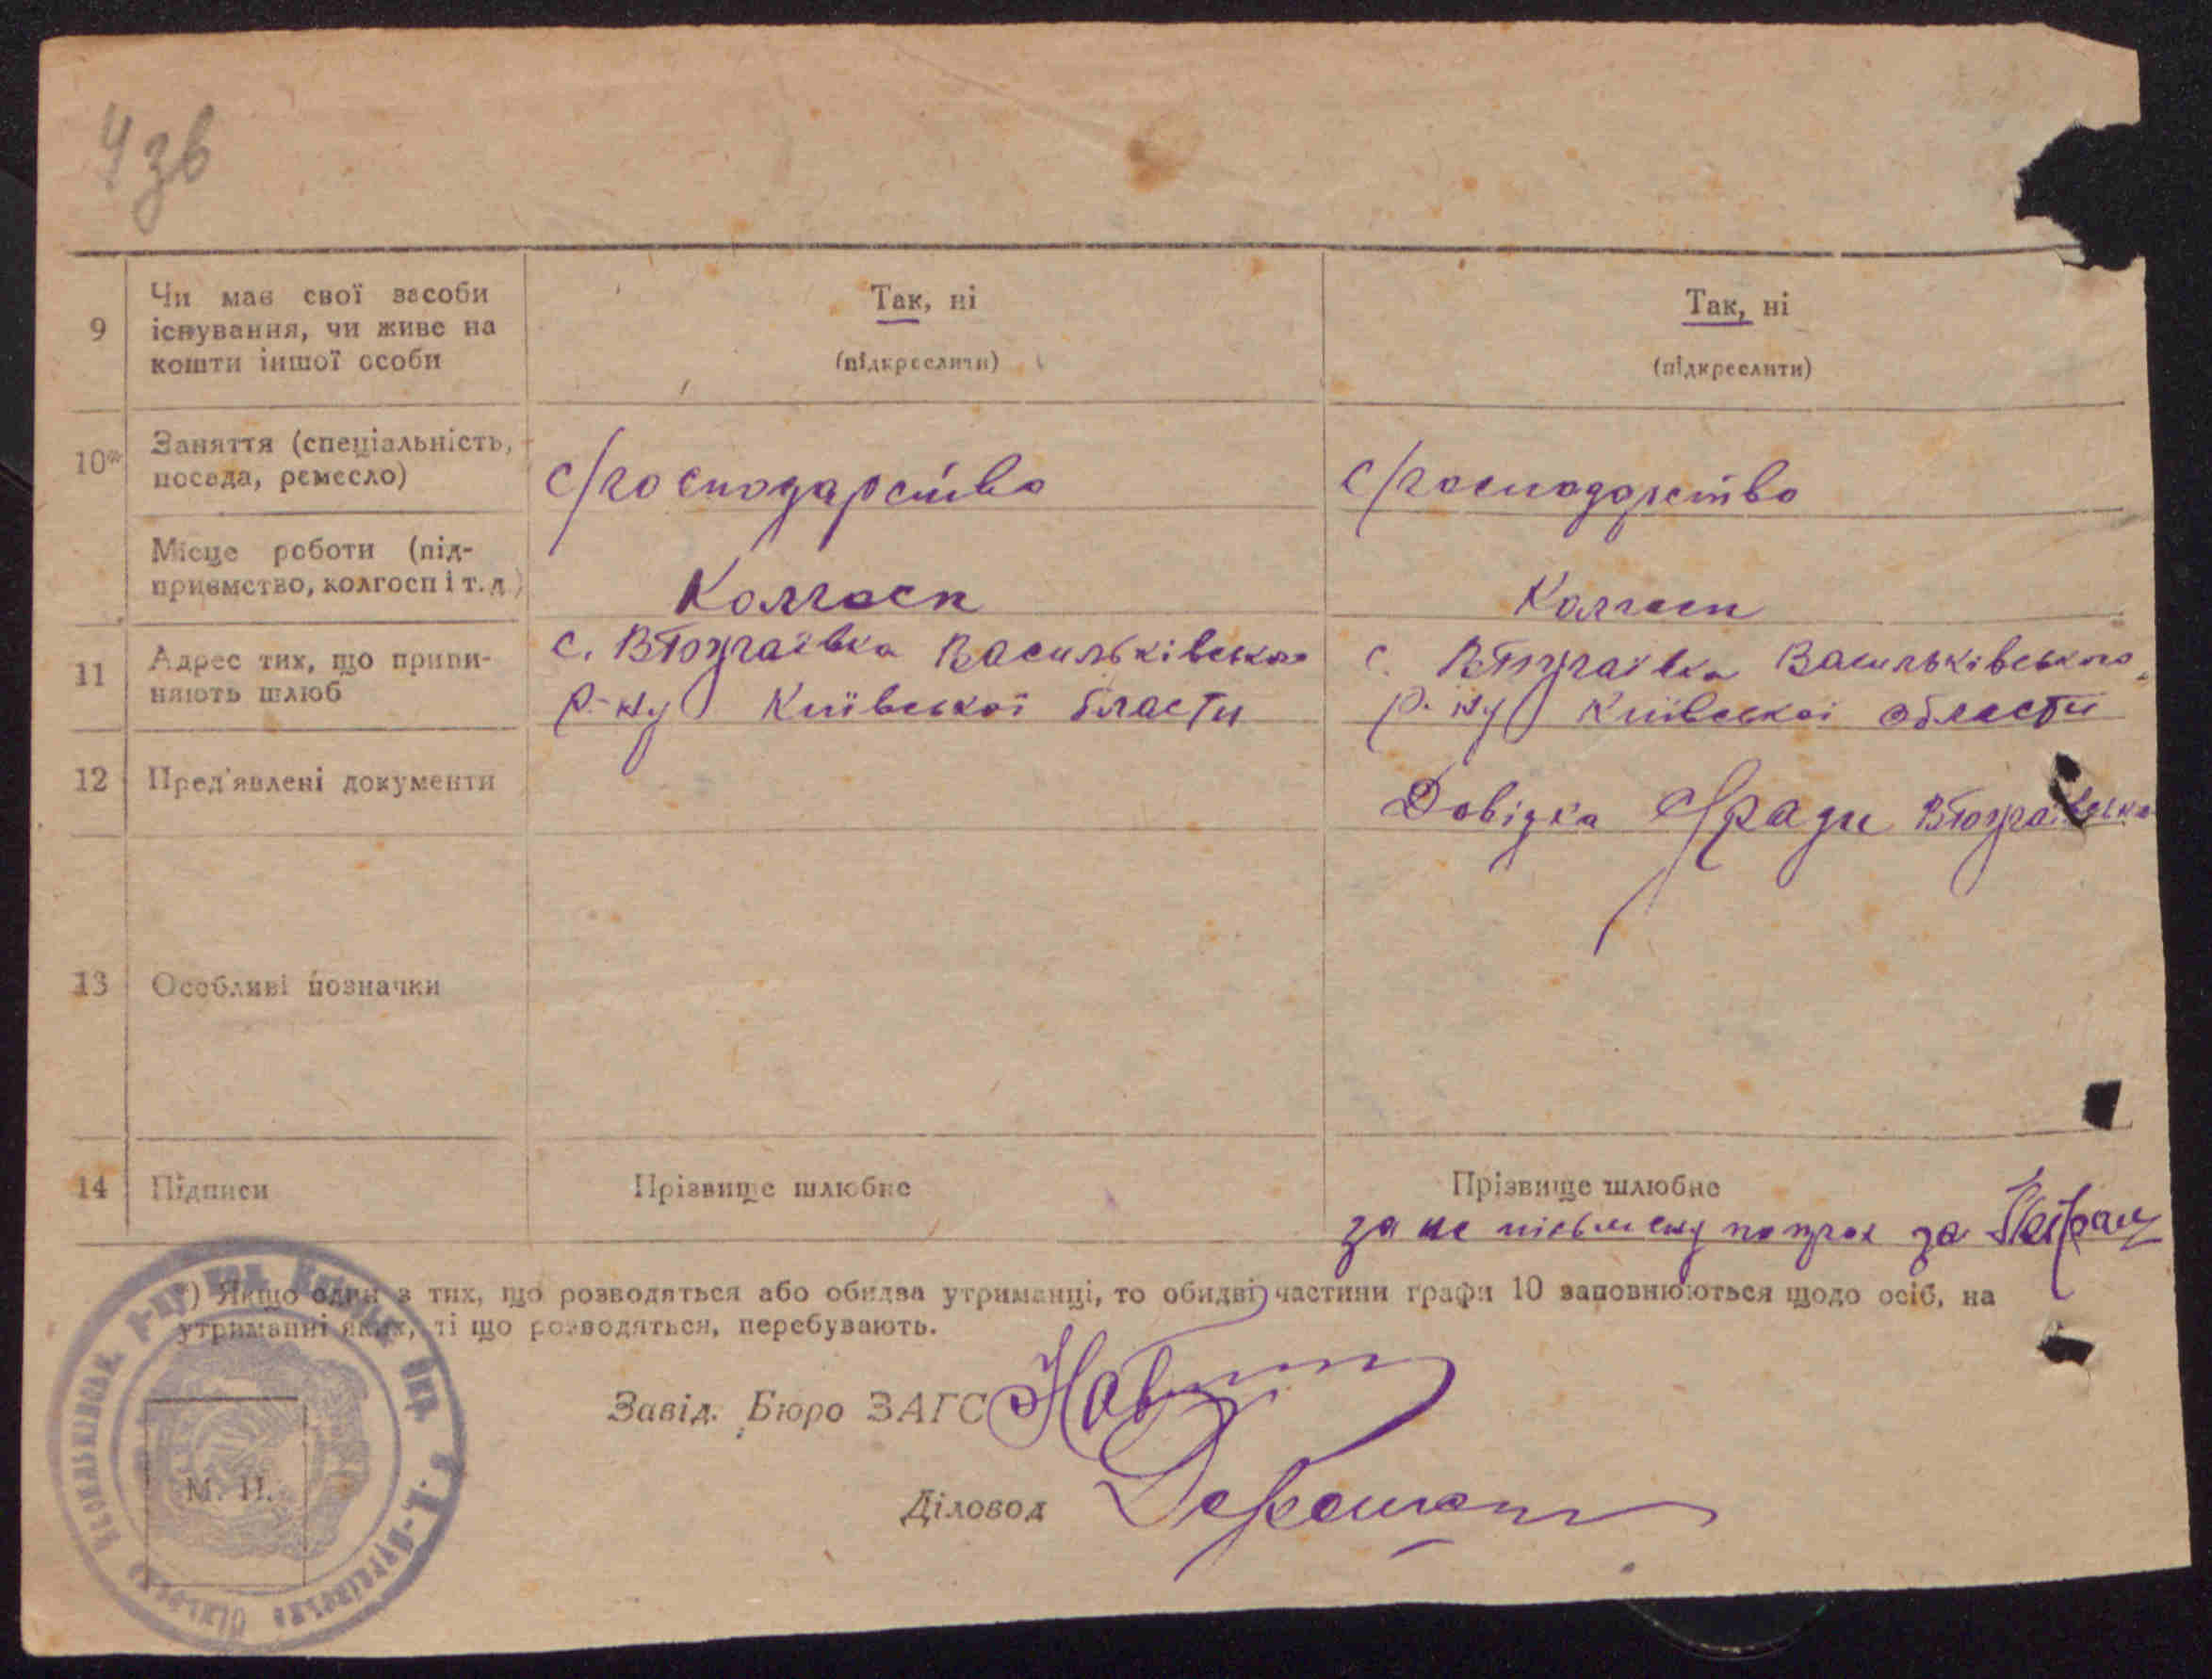 4 зв
9
Чи має свої засоби
існування, чи живе на
кошти іншої особи
Так, ні
(підкреслити)
Так, ні
(підкреслити)
10*
Заняття (спеціальність,
посада, ремесло)
с/господарство
с/господарство
Місце роботи (під-
приємство, колгосп і т. д.)
Колгосп
Колгосп
11
Адрес тих, що припи-
няють шлюб
с. Васильківського
р-ну Київської бласти
с. Васильківського
р-ну Київської области
12
Пред'явлені документи
Довідка с/ради
13
Особливі позначки
14
Підписи
Прізвище шлюбне
Прізвище шлюбне
за не письмену
*) Якщо один з тих, що розводяться або обидва утриманці, то обидві частини графи 10 заповнюються щодо осіб, на
утриманні яких, ті що розводяться, перебувають.
Завід. Бюро ЗАГС
Діловод
М. П.